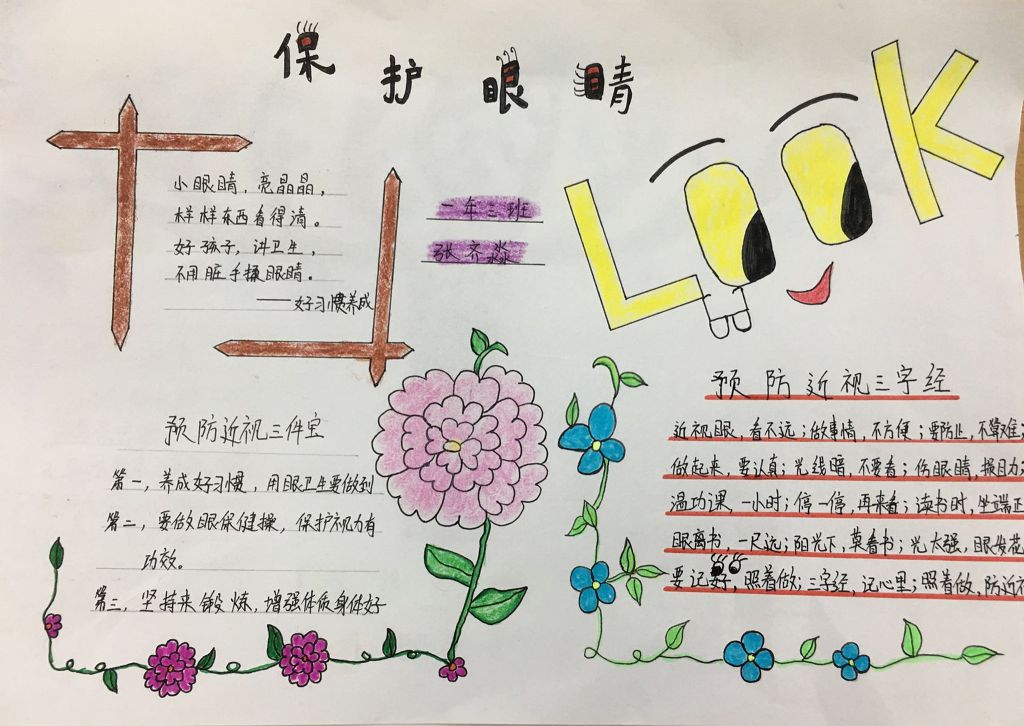 保护眼睛
Look
小眼睛,亮晶晶,
样样东西看得清。
好孩子,讲卫生,
不用脏手揉眼睛。
——好习惯养成
一年三班
张齐淼
预防近视三件宝
第一,养成好习惯,用眼卫生要做到
第二,要做眼保健操,保护视力有
功效。
第三,坚持来锻炼,增强体质身体好
预防近视三字经
近视眼,看不远;做事情,不方便;要防止,不算难;
做起来,要认真;光线暗,不要看;伤眼睛,损目力;
温功课,一小时;停一停,再来看;读书时,坐端正
眼离书,一尺远;阳光下,莫看书;光太强,眼发花
要记好,照着做;三字经,记心里;照着做,防近视